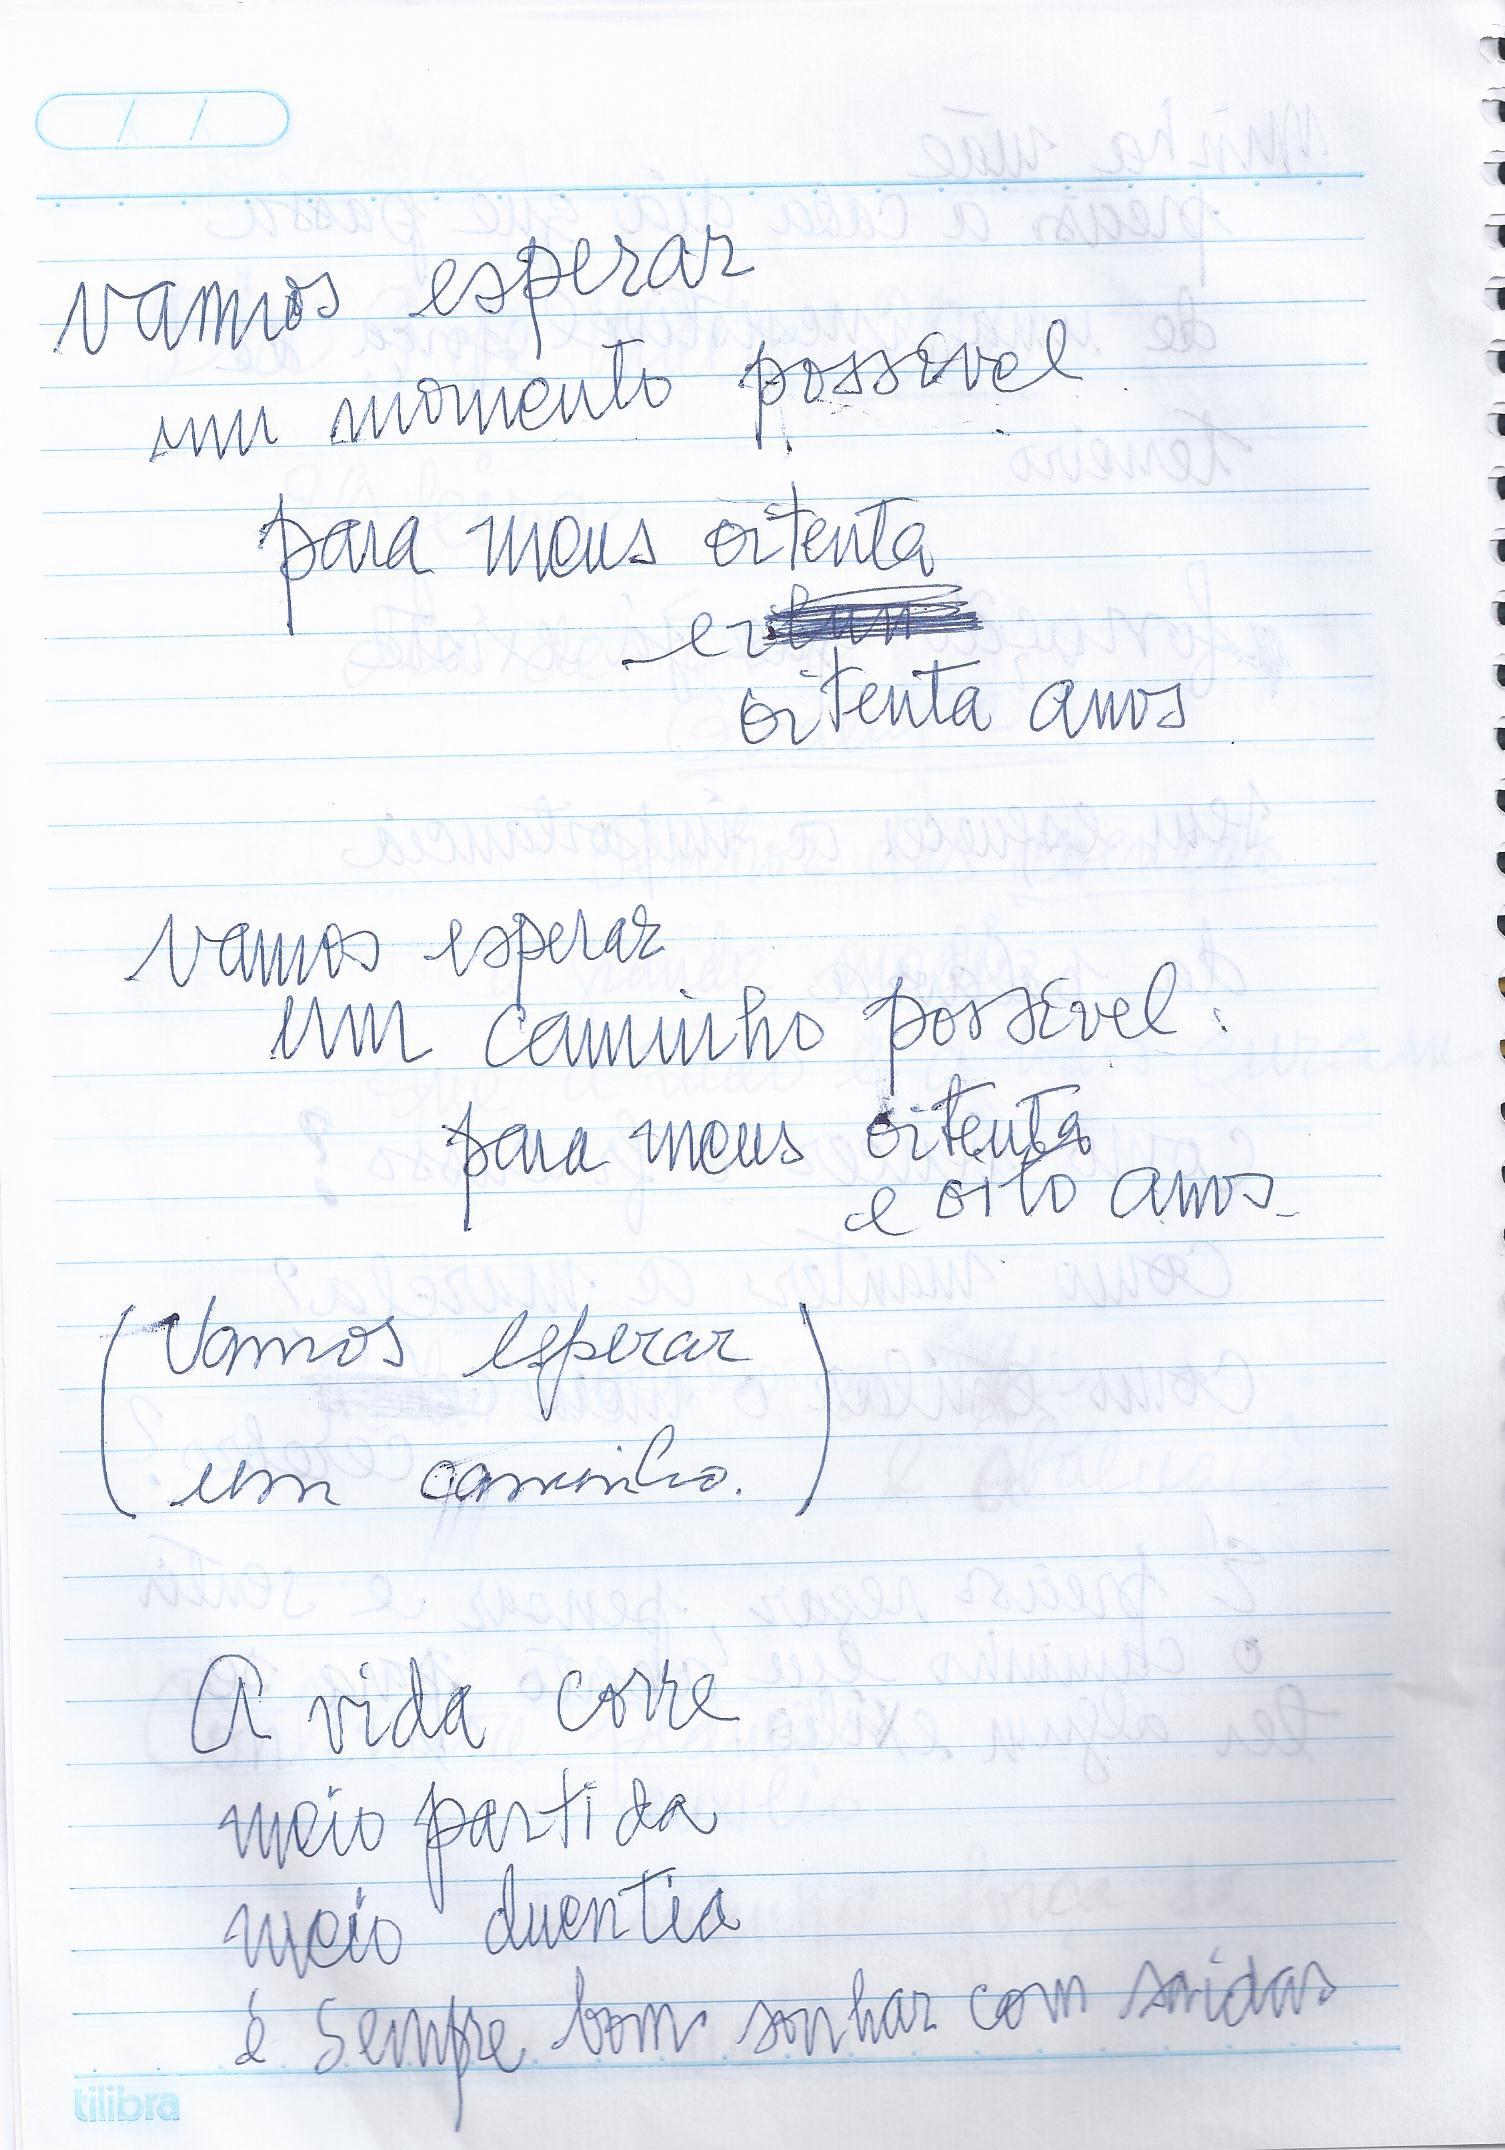 vamos esperar
um momento possível
para meus oitenta
e
oitenta anos
vamos esperar
um caminho possível
para meus oitenta
e oito anos
(Vamos esperar
um caminho.)
A vida corre
meio partida
meio
é sempre bom sonhar com saídas
tilibra